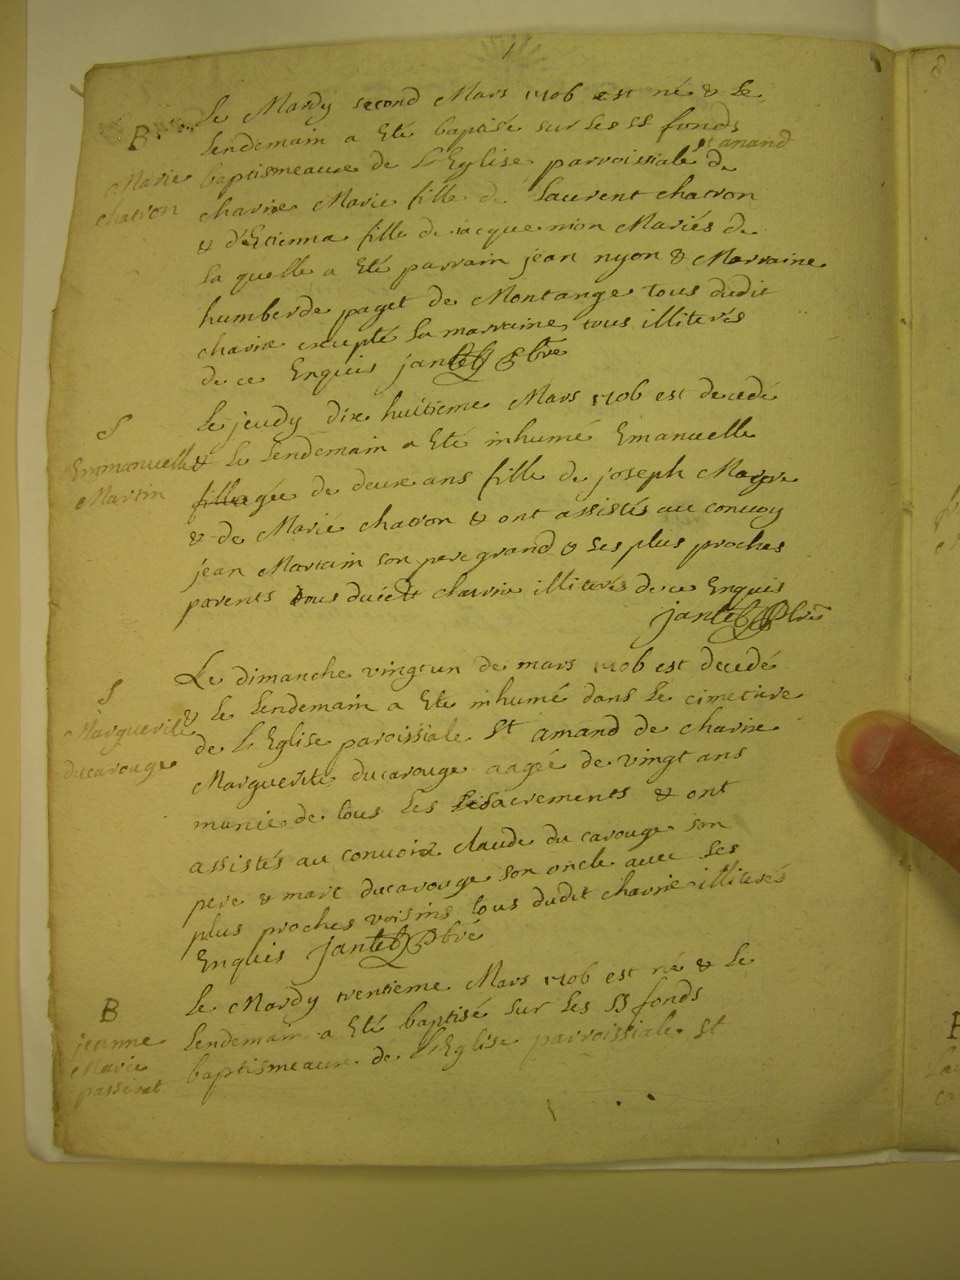 B
Marie
chatron
Le Mardy second Mars 1706 est né & Le
Lendemain a Eté baptisé sur Les SS fonds
baptismeaux de L'Eglise parroissiale St amand de
charix Marie fille de Laurent chatron
& d'Etienna fille de jacquemion Mariés de
La quelle a Eté parrain jean nyon & Marraine
humberde paget de Montange tous dudit
charix excepté La marraine tous illiterés
de ce Enquis jantet pbre
S
Emmanuelle
Martin
Le jeudy dix huitieme Mars 1706 est decedé
& Le Lendemain a Eté inhumé Emanuelle
agée de deux ans fille de joseph
& de Marie chatron & ont assistés au convoy
jean Martin son pere grand & ses plus proches
parents tous dudit charix illiterés de ce Enquis
jantet pbre
S
Marguerite
ducarouge
Le dimanche vingt un de mars 1706 est decedé
& Le Lendemain a Eté inhumé dans Le cimetiere
de L'Eglise paroissiale St amand de charix
Marguerite ducarouge aagée de vingt ans
munie de tous Les sacrements & ont
assistés au convoix claude du carouge son
pere & marc ducarouge son oncle avec ses
plus proches voisins tous dudit charix illiterés
Enquis jantet pbre
B
jeanne
Marie
passerat
Le Mardy trentieme Mars 1706 est né & Le
Lendemain a Eté baptisé sur Les SS fonds
baptismeaux de L'Eglise parroissiale St